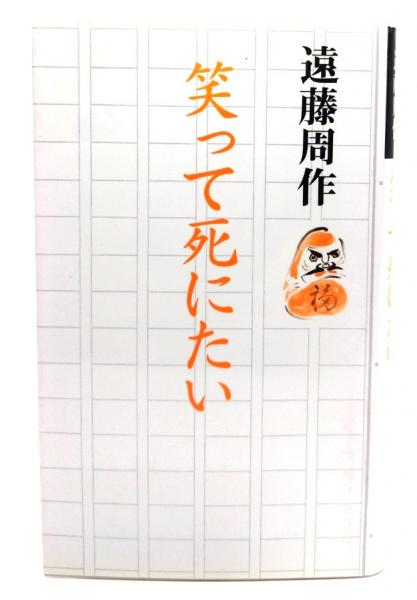 遠藤周作
笑って死にたい
福